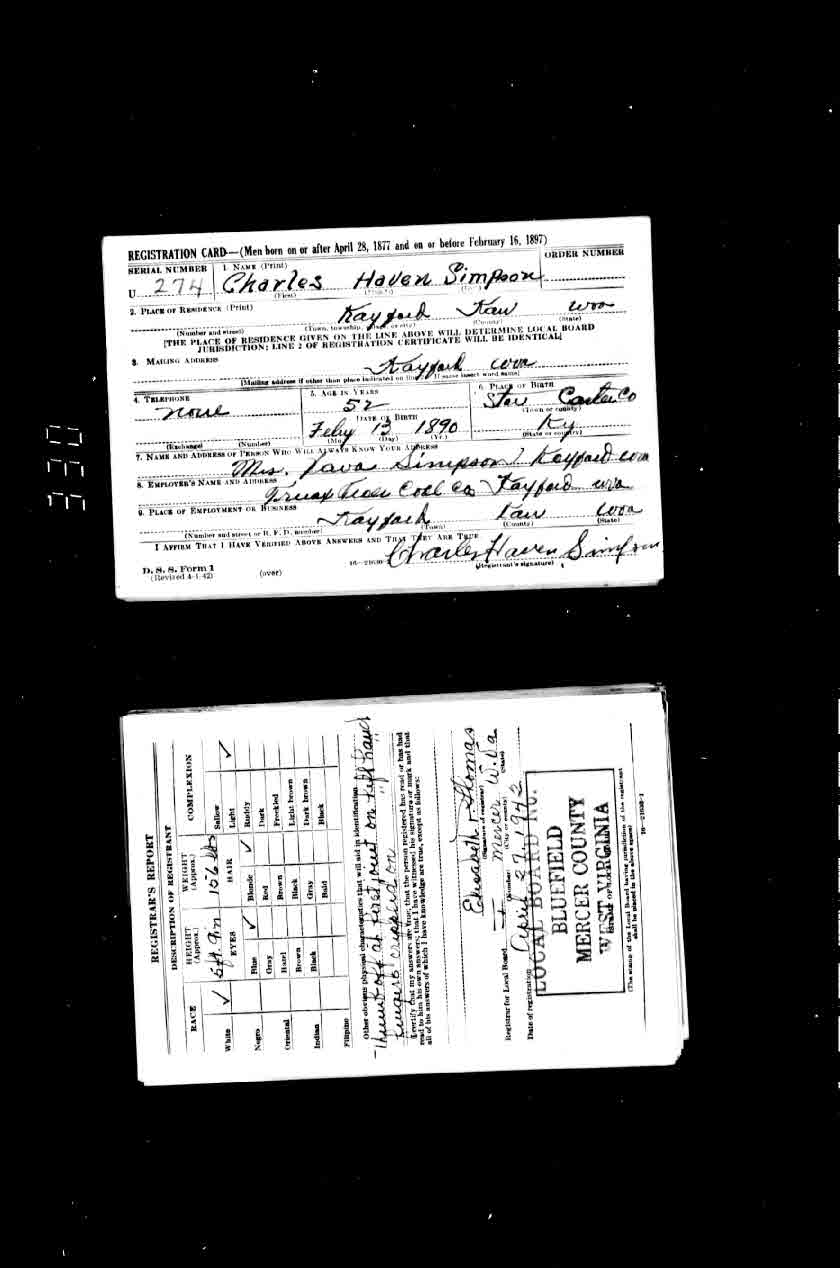 REGISTRATION CARD—(Men born on or after April 28, 1877 and on or before February 16, 1897)
SERIAL NUMBER 1. NAME (Print) ORDER NUMBER
U 274 Charles Haven Simpson
(First) (Middle) (Last)
2. PLACE OF RESIDENCE (Print)
Kayford Kaw wva
(Number and street) (Town, township, village, or city) (County) (State)
[THE PLACE OF RESIDENCE GIVEN ON THE LINE ABOVE WILL DETERMINE LOCAL BOARD
JURISDICTION; LINE 2 OF REGISTRATION CERTIFICATE WILL BE IDENTICAL]
3. MAILING ADDRESS
Kayford wva
[Mailing address if other than place indicated on line 2. If same insert word same]
4. TELEPHONE 5. AGE IN YEARS 6. PLACE OF BIRTH
none 52 Star Carter Co
DATE OF BIRTH (Town or county)
Feby 13 1890 Ky
(Exchange) (Number) (Mo.) (Day) (Yr.) (State or country)
7. NAME AND ADDRESS OF PERSON WHO WILL ALWAYS KNOW YOUR ADDRESS
Mrs. Simpson Kayford wva
8. EMPLOYER'S NAME AND ADDRESS
Truax Coal Co Kayford wva
9. PLACE OF EMPLOYMENT OR BUSINESS
Kayford Kaw wva
(Number and street or R. F. D. number) (Town) (County) (State)
I AFFIRM THAT I HAVE VERIFIED ABOVE ANSWERS AND THAT THEY ARE TRUE
Charles Haven Simpson
D. S. S. Form 1
(Revised 4-1-42) (over) 16—21630-1 (Registrant's signature)
330
REGISTRAR'S REPORT
DESCRIPTION OF REGISTRANT
RACE HEIGHT (Approx.) WEIGHT (Approx.) COMPLEXION
White ✓ 5 ft. 9 in 156 lbs Sallow
EYES HAIR Light ✓
Negro Blue ✓ Blonde ✓ Ruddy
Gray Red Dark
Oriental Hazel Brown Freckled
Brown Black Light brown
Indian Black Gray Dark brown
Bald Black
Filipino
Other obvious physical characteristics that will aid in identification
Thumb off at first joint on left hand
fingers crippled on " "
I certify that my answers are true; that the person registered has read or has had
read to him his own answers; that I have witnessed his signature or mark and that
all of his answers of which I have knowledge are true, except as follows:
Elizabeth Thomas
(Signature of registrar)
Registrar for Local Board Mercer W. Va
(Number) (City or county) (State)
Date of registration April 27, 1942
LOCAL BOARD NO.
BLUEFIELD
MERCER COUNTY
WEST VIRGINIA
(STAMP OF LOCAL BOARD)
(The stamp of the Local Board having jurisdiction of the registrant
shall be placed in the above space)
16—21630-1